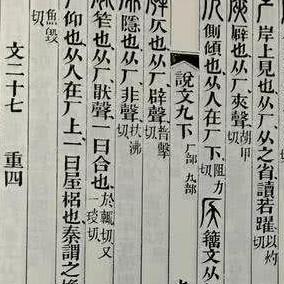 岸上見也。从厂,从之省。讀若躍。以灼切
廦也。从厂,夾聲。胡甲切
側傾也。从人在厂下。阻力切 籒文从
說文九下 厂部 九部
仄也。从厂,辟聲。普擊切
隱也。从厂,非聲。扶沸切
笮也。从厂,猒聲。一曰合也。於輒切又一琰切
仰也。从人在厂上。一曰屋梠也,秦謂之
魚毀切
文二十七 重四